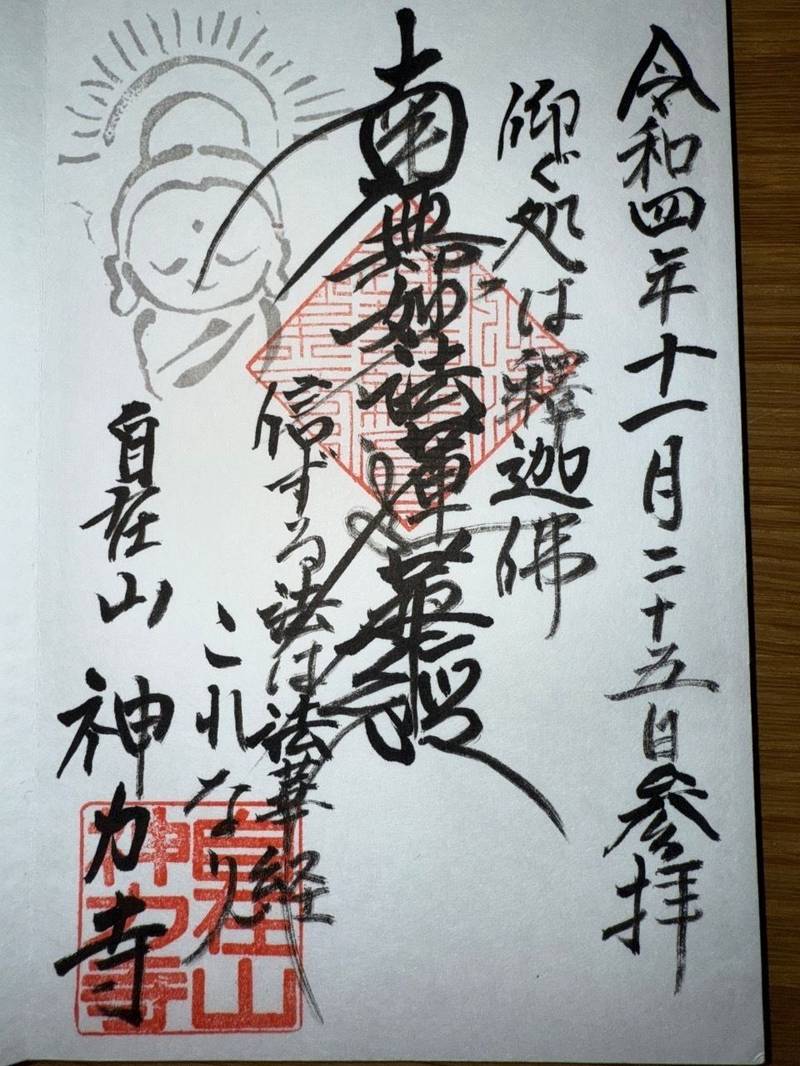 令和四年十一月二十五日参拝
仰ぐ処は釋迦佛
南無妙法蓮華経
信ずる法は法華経
これなり
自在山 神力寺
自在山
神力寺